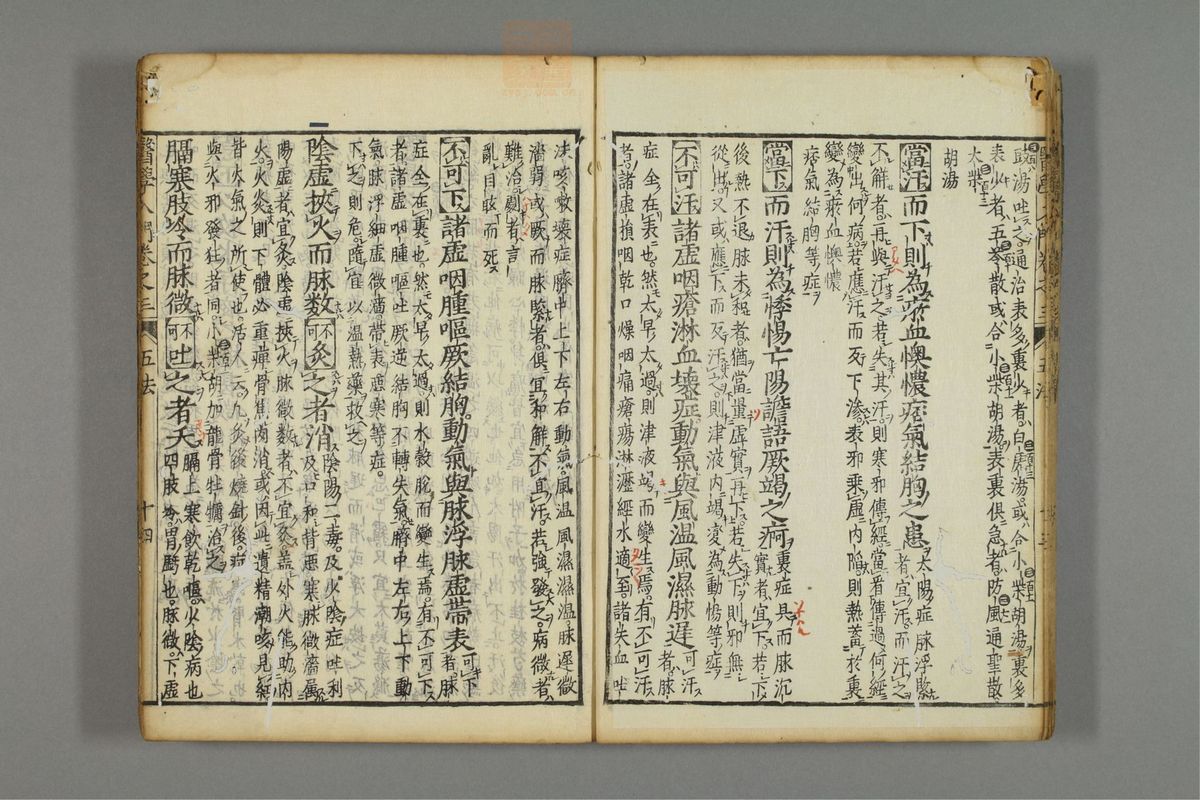 豉湯吐之通治表多裏少者白虎湯或合小柴胡湯裏多
表少者五苓散或合小柴胡湯表裏俱急者防風通聖散
大柴
胡湯
當汗而下則為瘀血懊憹痞氣結胸之患
太陽症脉浮緊
者宜汗而汗之
不解者再與汗之若失其汗則寒邪傳經當看傳過何經
變出何病若應汗而反下滲表邪乘虛內陷則熱蓄於裏
變為瘀血懊憹
痞氣結胸等症
當下而汗則為悸惕亡陽譫語厥竭之痾
裏症具而脉沉
實者宜下若下
後熱不退脉未和者猶當量虛實再下若失下則邪無
從出又或應下而反汗之則津液內竭變為動惕等症
不可汗諸虛咽瘡淋血壞症動氣與風温風濕脉遲
不可汗
者脉
症全在表也然太早太過則津液竭而變生焉有不可汗
者諸虛損咽乾口燥咽痛瘡瘍淋瀝經水適至諸失血吐
沫咳嗽壞症臍中上下左右動氣風温風濕濕温脉遲微
濇弱或厥而脉緊者俱宜和解不宜汗若強發之病微者
難治劇者言
亂目眩而死
不可下諸虛咽腫嘔厥結胸動氣與脉浮脉虛帶表
可下
者脉
症全在裏也然太早太過則水穀脫而變生焉有不可下
者諸虛咽腫嘔吐厥逆結胸不轉失氣臍中左右上下動
氣脉浮細虛微濇帶表惡寒等症
下之則危隨宜以温熱藥救之
陰虛挾火而脉数不可灸之者消
陰陽二毒及少陰症吐利
及口和背惡寒脉微濇屬
陽虛者宜灸陰虛挾火脉微数者不宜灸蓋外火能助內
火火灸則下體必重痺骨焦肉消或因此遺精潮咳見紅
皆火氣之所使也活人云凡灸後燒針後症
與火邪發狂者同小柴胡加龍骨牡蠣治之
膈寒肢冷而脉微不可吐之者夭
膈上寒飲乾嘔少陰病也
四肢冷胃虧也脉微下虛
醫學入門卷之三
五法
十四